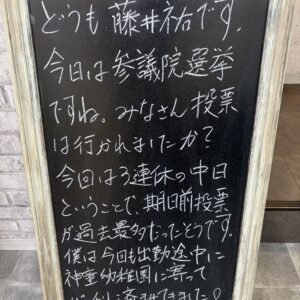 どうも藤井祐です。
今日は参議院選挙
ですね。みなさん投票
は行かれましたか?
今回は3連休の中日
ということで、期日前投票
が過去最多だったそうです。
僕は今日も出勤途中に
神童幼稚園に寄って